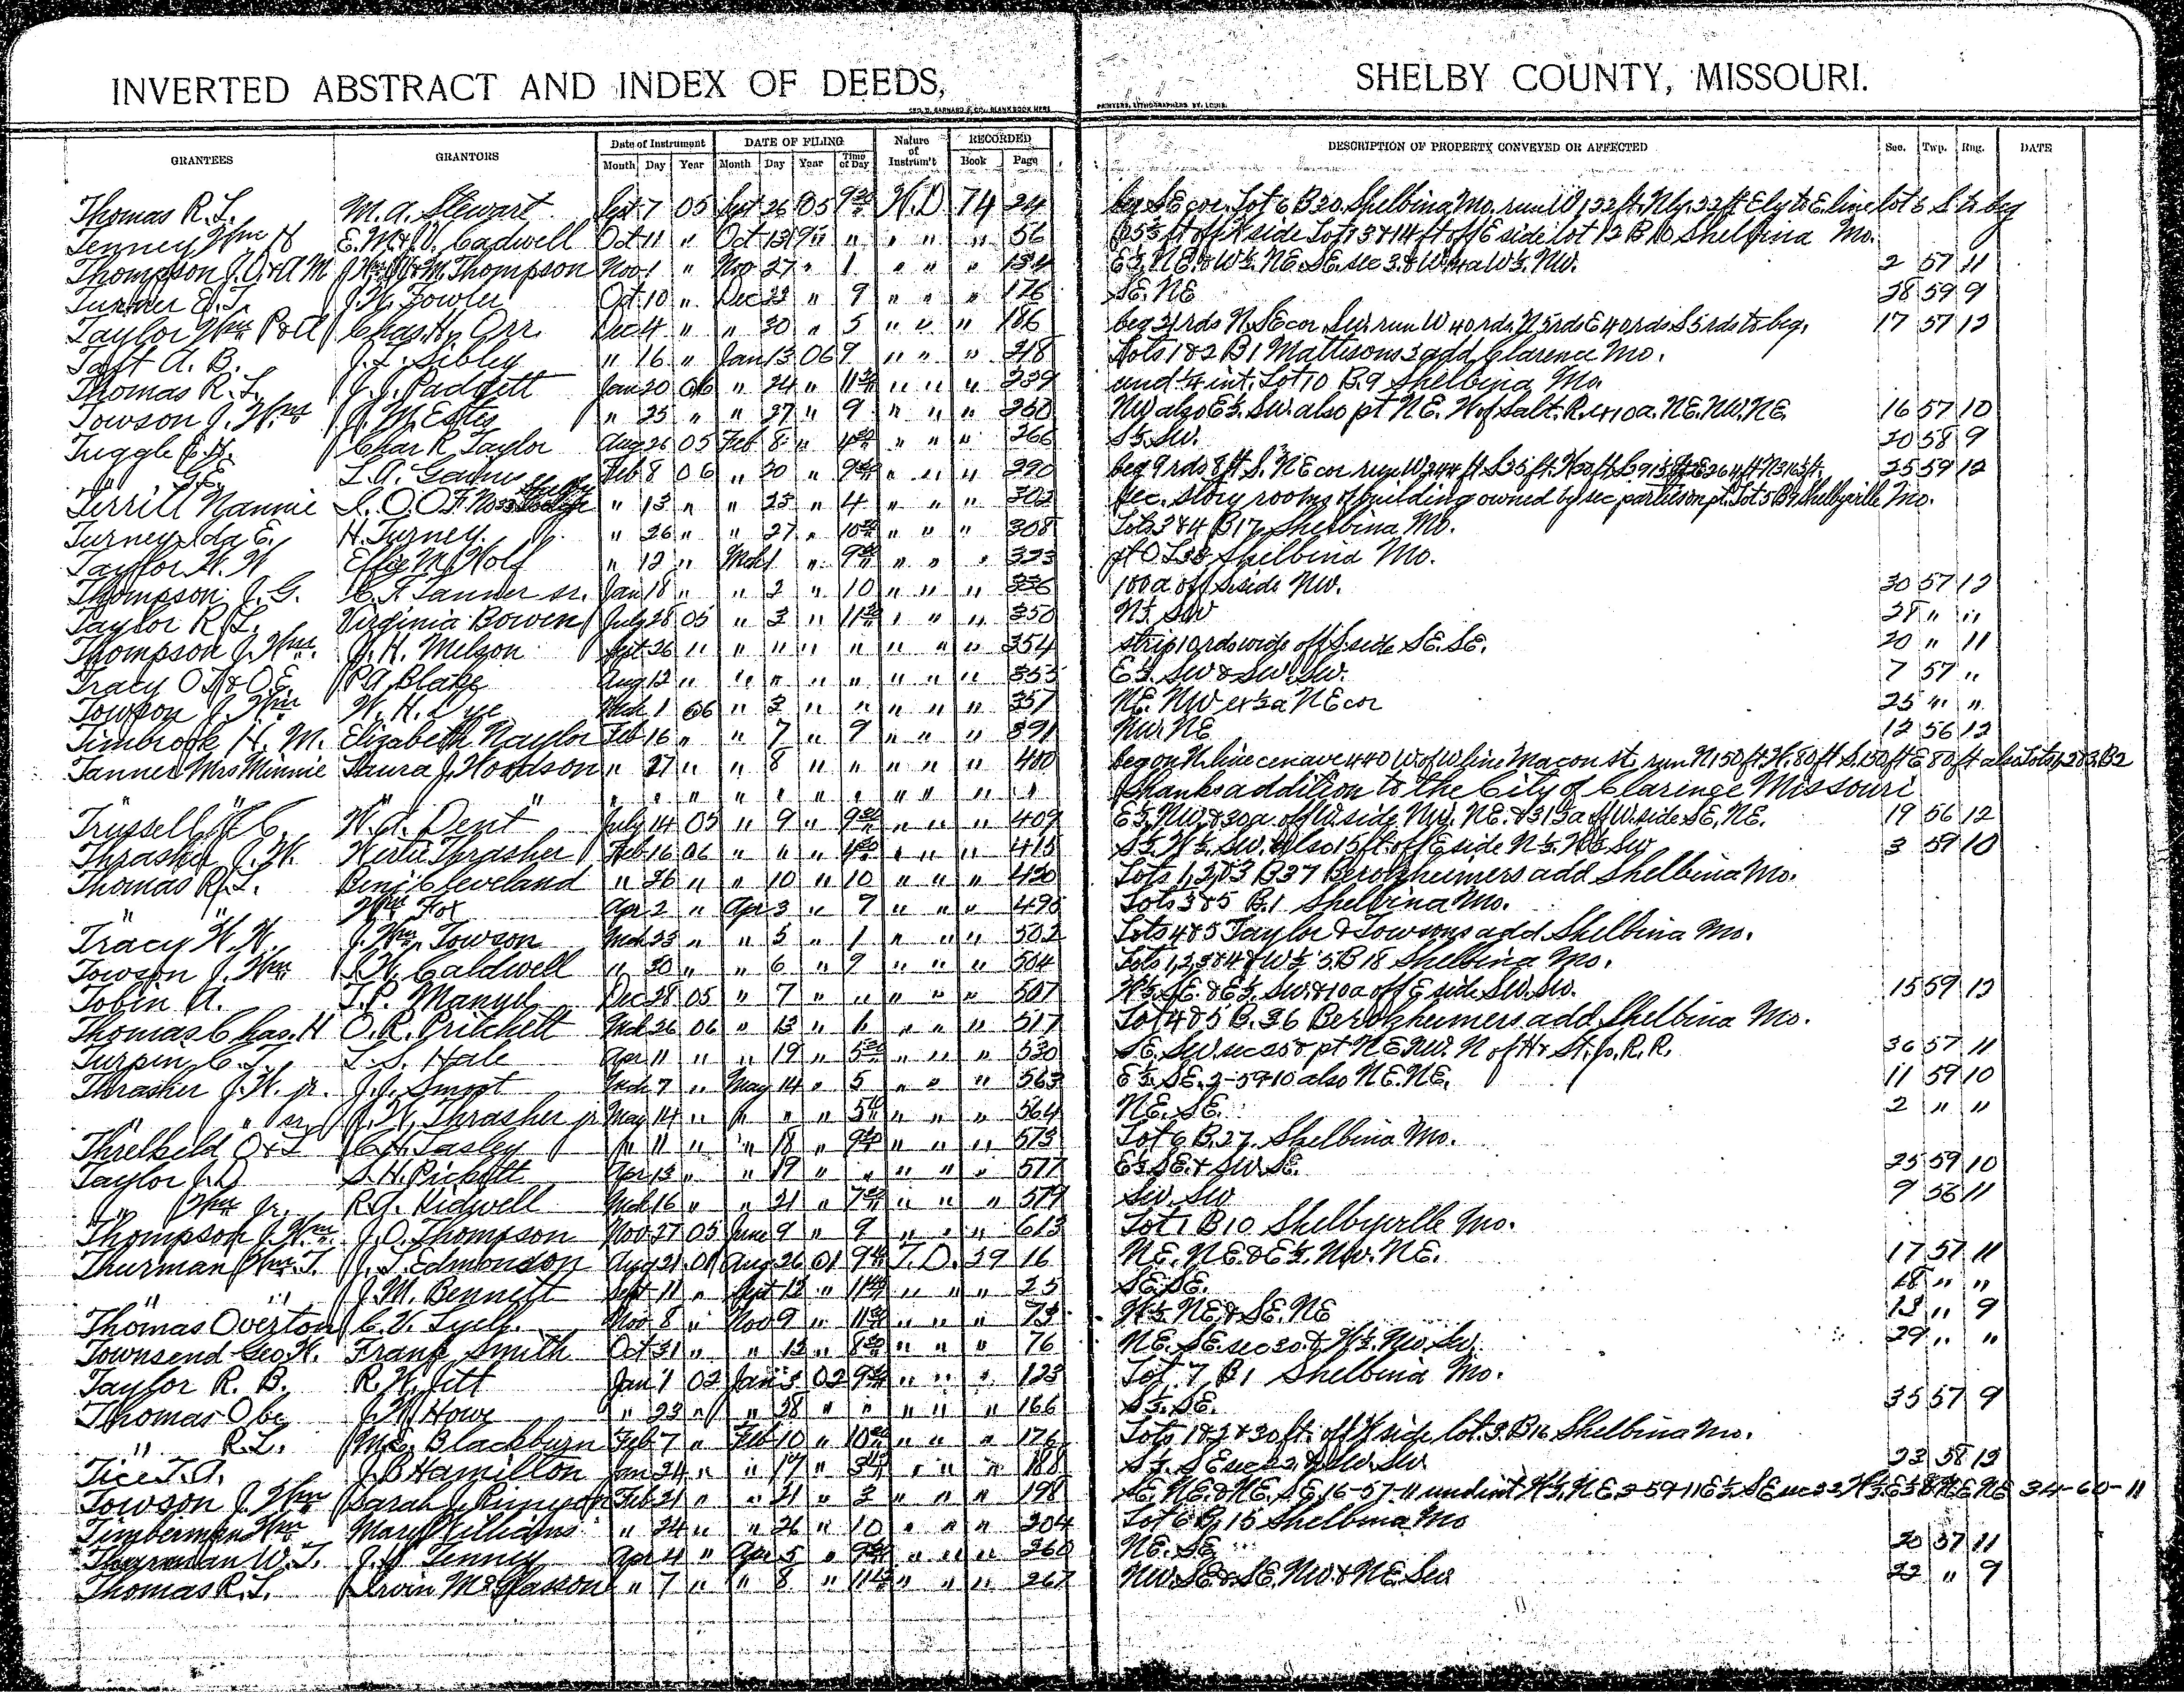 INVERTED ABSTRACT AND INDEX OF DEEDS, SHELBY COUNTY, MISSOURI.
GEO. D. BARNARD & CO., BLANK BOOK MFRS PRINTERS, LITHOGRAPHERS, ST. LOUIS.
GRANTEES GRANTORS Date of Instrument DATE OF FILING Nature of Instrum't RECORDED DESCRIPTION OF PROPERTY CONVEYED OR AFFECTED Sec. Twp. Rng. DATE
Month Day Year Month Day Year Time of Day Book Page
Thomas R. L. M. A. Stewart Sept 7 05 Sept 26 05 9 W.D. 74 24 beg SE cor. Lot 6 B 20 Shelbina Mo. run W 122 ft. Nly. 22 ft Ely to E. line lot 6 S. to beg
Tenney Wm H E. M. & V. Cadwell Oct 11 " Oct 13 " " " " 56 side Lot 13 & 14 ft off E side lot 12 B 10 Shelbina Mo.
Thompson J. O. & A M M. Thompson Nov 1 " Nov 27 " 1 " " " 134 E½. NE. & W½. NE. SE. sec 3. & W½. NW. 2 57 11
Turner E. T. J. W. Fowler Oct 10 " Dec 22 " 9 " " " 176 SE. NE 28 59 9
Taylor Wm P & A Chas. H. Orr Dec 4 " " 30 " 5 " " " 186 beg 21 rds N. SE cor. SW. run W 40 rds. N 5 rds E 40 rds S 5 rds to beg. 17 57 12
Taft A. B. J. L. Sibley " 16 " Jan 13 06 9 " " " 218 Lots 1 & 2 B 1 Mattisons 3 add Clarence Mo.
Thomas R. L. J. J. Padgett Jan 20 06 " 24 " 11 " " " 239 und ¼ int. Lot 10 B. 9 Shelbina Mo.
Towson J. Wm J. M. Estes " 25 " " 27 " 9 " " " 260 NW also E½. SW. also pt NE. W of Salt. R. ex 10 a. NE. NW. NE 16 57 10
Tuggle E. H. Char R Taylor Aug 26 05 Feb 8 " 4 " " " 266 S½. SW. 20 58 9
" G. E. L. A. Feb 8 06 " 20 " 9 " " " 290 beg 9 rds 8 ft S. NE cor run W 244 ft 25 59 12
Terrill Nannie I. O. O. F. No " 13 " " 23 " 4 " " " 302 sec. story rooms of building owned by sec parties on pt. Lot 5 B 9 Shelbyville Mo.
Turney Ida E. H. Turney. " 26 " " 27 " 10 " " " 308 Lots 3 & 4 B 17 Shelbina Mo.
Taylor W. W Effie M. Wolf " 12 " Mch 1 " 9 " " " 323 pt O L 38 Shelbina Mo.
Thompson J. G. C. F. Tanner sr. Jan 18 " " 2 " 10 " " " 336 100 a off S side NW. 30 57 12
Taylor R. L. Virginia Bowen July 28 05 " 3 " 11 " " " 350 N½. SW 28 " "
Thompson J. Wm. J. H. Melson Sept 26 " " " " " " " " 354 strip 10 rds wide off S. side SE. SE. 20 " 11
Tracy O. F. & O E. P. A. Blake Aug 12 " " " " " " " " 355 E½. SW & SW. SW. 7 57 "
Towson J. Wm W. H. Dye Mch 1 06 " 3 " " " " " 357 NE. NW ex ½ a NE cor 25 " "
Timbrook H. M. Elizabeth Naylor Feb 16 " " 7 " 9 " " " 391 NW. NE 12 56 12
Tanner Mrs Minnie Laura J. Woodson " 27 " " 8 " " " " " 400 beg on N. line cen ave 440 W of W line Macon st. run N. 150 ft W. 80 ft S. 150 ft E 80 ft also Lots 1, 2 & 3 B 2
" " " " " " " " " " " " " " Shanks addition to the City of Clarence Missouri
Trussell W. C. W. A. Dent July 14 05 " 9 " 9 " " " 409 E½. NW. & 30 a. off W. side NW. NE. & 313 a off W. side SE. NE. 19 56 12
Thrasher J. W. Kertie Thrasher Feb 16 06 " " " 4 " " " 415 S½. W½. SW. also 15 ft. off E side N½. W½ SW 3 59 10
Thomas R. L. Benj Cleveland " 26 " " 10 " 10 " " " 420 Lots 1, 2 & 3 B 37 Berolzheimers add Shelbina Mo.
" " Wm Fox Apr 2 " Apr 3 " 9 " " " 495 Lots 3 & 5 B. 1 Shelbina Mo.
Tracy W. W. J. Wm. Towson Mch 23 " " 5 " 1 " " " 502 Lots 4 & 5 Taylor & Towsons add Shelbina Mo.
Towson J. Wm J. W. Caldwell " 30 " " 6 " 9 " " " 504 Lots 1, 2, 3 & 4 & W½ 5. B 18 Shelbina Mo.
Tobin A. T. P. Manuel Dec 28 05 " 7 " " " " " 507 W½. SE. & E½. SW. & 10 a off E side SW. SW. 15 59 12
Thomas Chas. H O. R. Pritchett Mch 26 06 " 13 " 1 " " " 517 Lot 4 & 5 B. 36 Berolzheimers add Shelbina Mo.
Turpin C. T. L. S. Hale Apr 11 " " 19 " 5 " " " 530 SE. SW. sec 25 & pt NE NW. N of H & St. Jo. R. R. 36 57 11
Thrasher J. W. jr. J. J. Smoot Mch 7 " May 14 " 5 " " " 563 E½. SE. 2-59-10 also NE. NE. 11 59 10
" " sr J. W. Thrasher jr May 14 " " " " 5 " " " 564 NE. SE. 2 " "
Threlkeld O & L C. H. Lasley " 11 " " 18 " 9 " " " 573 Lot 6 B. 27 Shelbina Mo.
Taylor J. D S. H. Pickett Apr 13 " " 19 " " " " " 577 E½. SE. & SW. SE. 25 59 10
" Wm Jr. R. A. Kidwell Mch 16 " " 21 " 7 " " " 579 SW. SW 9 56 11
Thompson J. Wm. J. O. Thompson Nov 27 05 June 9 " 9 " " " 613 Lot 1 B 10 Shelbyville Mo.
Thurman Wm. T. J. T. Edmondson Aug 21 01 Aug 26 01 9 T. D. 39 16 NE. NE. & E½. NW. NE. 17 57 11
" " J. M. Bennett Sept 11 " Sept 12 " 11 " " " 25 SE. SE. 18 " "
Thomas Overton C. V. Lyell. Nov 8 " Nov 9 " 11 " " " 73 W½. NE. & SE. NE 13 " 9
Townsend Geo. W. Frank Smith Oct 31 " " 12 " 8 " " " 76 NE. SE. sec 30. & W½. NW. SW. 29 " "
Taylor R. B. R. W. Jett Jan 1 02 Jan 3 02 9 " " " 123 Lot 7 B 1 Shelbina Mo.
Thomas Obe J. W. Howe " 23 " " 28 " " " " " 166 S½. SE. 35 57 9
" R. L. M. E. Blackburn Feb 7 " Feb 10 " 10 " " " 176 Lots 1 & 2 & 30 ft. off W side lot. 3. B 16 Shelbina Mo.
Tice T. A. J. B Hamilton Jan 24 " " 17 " 3 " " " 188 S½. SE sec 22 & SW. SW 23 58 12
Towson J. Wm Sarah J. Feb 21 " " 21 " 2 " " " 198 SE. NE. & NE. SE. 16-57-11 und int W½. NE. 3-59-11 E½. SE sec 34-60-11
Timberman Wm Mary Williams " 24 " " 26 " 10 " " " 204 Lot 6 B. 15 Shelbina Mo
Thurman W. T. J. H. Tenney Apr 4 " Apr 5 " 9 " " " 260 NE. SE 20 57 11
Thomas R. L. Irvin McGlasson " 7 " " 8 " 11 " " " 267 NW. SE. & SE. NW. & NE. SW 22 " 9